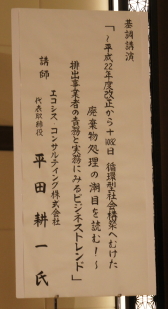 基調講演
「～平成22年度改正から十1002日 循環型社会構築へむけた
廃棄物処理の潮目を読む！～
排出事業者の責務と実務にみるビジネストレンド」
講師
エコシス・コンサルティング株式会社
代表取締役
平田耕一氏